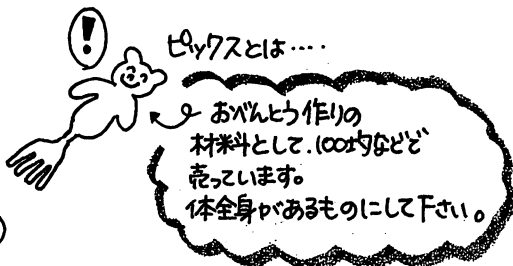 ！
ピックスとは‥‥
おべんとう作りの
材料として、100均などで
売っています。
体全身があるものにして下さい。